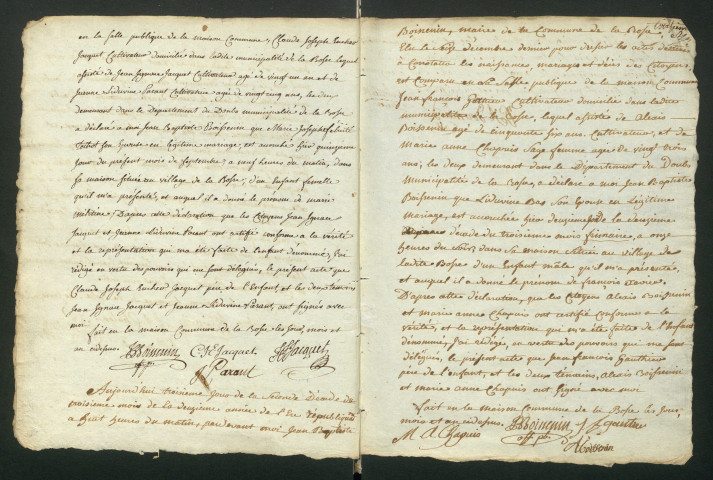 en la salle publique de la maison Commune, Claude Joseph
Jacquet Cultivateur domicilié dans ladite municipalité de la Bosse lequel
assisté de Jean Ignace Jacquet Cultivateur agé de vingt un an et de
Jeanne Liduvine Parant Cultivateur agée de vingt cinq ans, les deux
demeurant dans le Departement du Doubs municipalité de la Bosse
a déclaré a moi Jean Baptiste Boissenin que Marie Josephe
son Epouse en légitime mariage, est accouchée hier quinzieme
jour du present mois de Septembre a neuf heures du matin, dans
sa maison située au village de la Bosse, d'un Enfant femelle
qu'il m'a présenté, et auquel il a donné le prenom de marie
D'après cette déclaration que les Citoyens Jean Ignace
Jacquet et Jeanne Liduvine Parant ont certifié conforme a la vérité
et la représentation qui m'a été faite de l'enfant denommé, j'ai
rédigé en vertu des pouvoirs qui me sont délégués, le présent acte que
Claude Joseph Jacquet père de l'Enfant, et les deux témoins
Jean Ignace Jacquet et Jeanne Liduvine Parant, ont signés avec
moi
fait en la maison Commune de la Bosse les Jour, mois et
an cidessus. JB Boissenin Jacquet Jacquet
Parant
Aujourdhui troisieme Jour de la Seconde Décade du
troisieme mois de la deuxieme année de l'Ere républiq
a huit heures du matin, par devant moi Jean Baptiste
Boissenin, maire de la Commune de la Bosse
Elu le Seize décembre dernier pour dresser les actes destinés
a Constater les naissances, mariages et décès des Citoyens
est Comparu en la Salle publique de la maison Commune
Jean françois Gauthier Cultivateur domicilié dans ladite
municipalité de la Bosse, lequel assisté de Alexis
Boissenin agé de cinquante six ans, Cultivateur, et de
Marie anne Chapuis Sage femme agée de vingt trois
ans, les deux demeurant dans le Département du Doubs
Municipalité de la Bosse, a déclaré a moi Jean Baptiste
Boissenin, que Liduvine Bas Son Epouse en Légitime
Mariage, est accouchée hier deuxieme Jour de la Deuxieme
Decade du troisieme mois frimaire, a onze
heures du soir, dans Sa maison Située au village de
ladite Bosse d'un Enfant mâle qu'il m'a présenté,
et auquel il a donné le prenom de francois
D'apres cette déclaration, que les Citoyens Alexis Boissenin
et marie anne Chapuis ont certifié Conforme a la
vérité, et la représentation qui m'a été faite de l'Enfant
dénommé, J'ai rédigé, en vertu des pouvoirs qui me sont
délégués, le présent acte que Jean françois Gauthier
père de l'enfant, et les deux témoins, Alexis Boissenin
et Marie anne Chapuis ont Signé avec moi
fait en la maison Commune de la Bosse les Jour,
mois et an cidessus. JB Boissenin
M A Chapuis